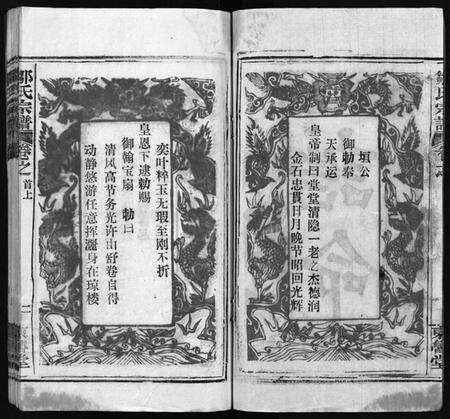 垣公
御勅奉
天承运
皇帝制曰堂堂清隐一老之杰德润
金石忠貫日月晚节昭回光辉
诰命
奕叶粹玉无瑕至刚不折
皇恩下逮勅赐
御翰宝扇 勅曰
清风高节务光许由舒卷自得
动静悠游任意挥灑身在琼楼
邹氏宗谱
卷之一
首上